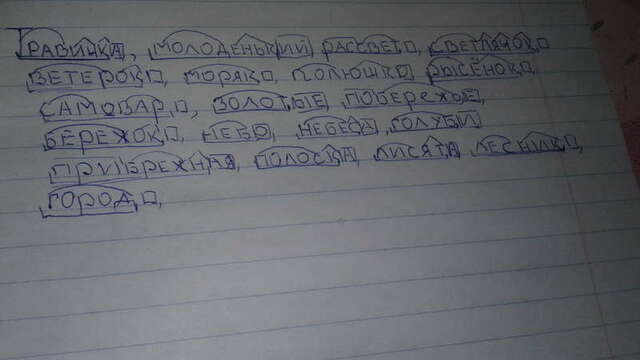 ТРАВИЧКА, МОЛОДЕНЬКИЙ РАССВЕТ, СВЕТЛЯЧОК
ВЕТЕРОК, МОРЯК, ПОЛЮШКО РЫСЁНОК,
САМОВАР, ЗОЛОТЫЕ ПОБЕРЕЖЬЕ,
БЕРЕЖОК, НЕБО, НЕБЕСА, ГОЛУБИ
ПРИБРЕЖНАЯ, ПОЛОСКА, ЛИСЯТА ЛЕСНИК,
ГОРОД,